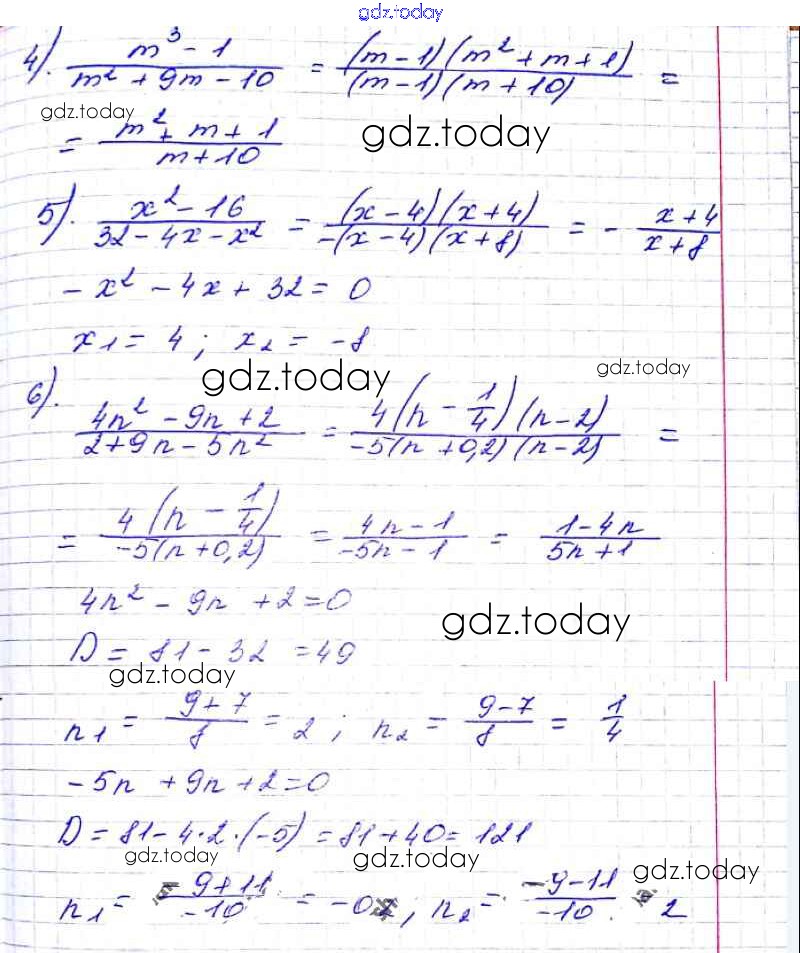 gdz.today
4). (m³ - 1)/(m² + 9m - 10) = ((m - 1)(m² + m + 1))/((m - 1)(m + 10)) =
gdz.today
= (m² + m + 1)/(m + 10)
gdz.today
5). (x² - 16)/(32 - 4x - x²) = ((x - 4)(x + 4))/(-(x - 4)(x + 8)) = - (x + 4)/(x + 8)
- x² - 4x + 32 = 0
x₁ = 4 ; x₂ = -8
gdz.today
gdz.today
6). (4n² - 9n + 2)/(2 + 9n - 5n²) = (4(n - 1/4)(n - 2))/(-5(n + 0,2)(n - 2)) =
= (4(n - 1/4))/(-5(n + 0,2)) = (4n - 1)/(-5n - 1) = (1 - 4n)/(5n + 1)
4n² - 9n + 2 = 0
gdz.today
D = 81 - 32 = 49
gdz.today
n₁ = (9 + 7)/8 = 2 ; n₂ = (9 - 7)/8 = 1/4
- 5n + 9n + 2 = 0
D = 81 - 4·2·(-5) = 81 + 40 = 121
gdz.today
gdz.today
gdz.today
n₁ = (- 9 + 11)/(-10) = -0, ; n₂ = (-9 - 11)/(-10) = 2